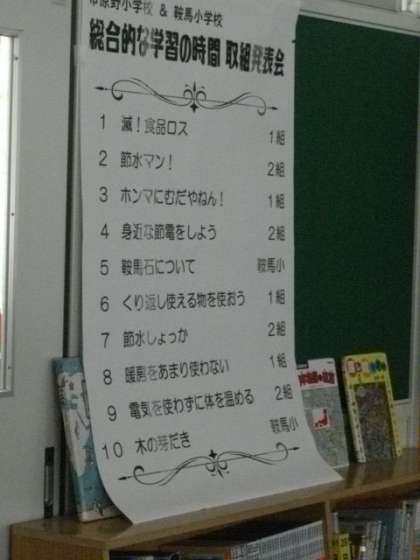 市原野小学校 & 鞍馬小学校
総合的な学習の時間 取組発表会
1 滅！食品ロス 1組
2 節水マン！ 2組
3 ホンマにむだやねん！ 1組
4 身近な節電をしよう 2組
5 鞍馬石について 鞍馬小
6 くり返し使える物を使おう 1組
7 節水しょっか 2組
8 暖房をあまり使わない 1組
9 電気を使わずに体を温める 2組
10 木の芽だき 鞍馬小